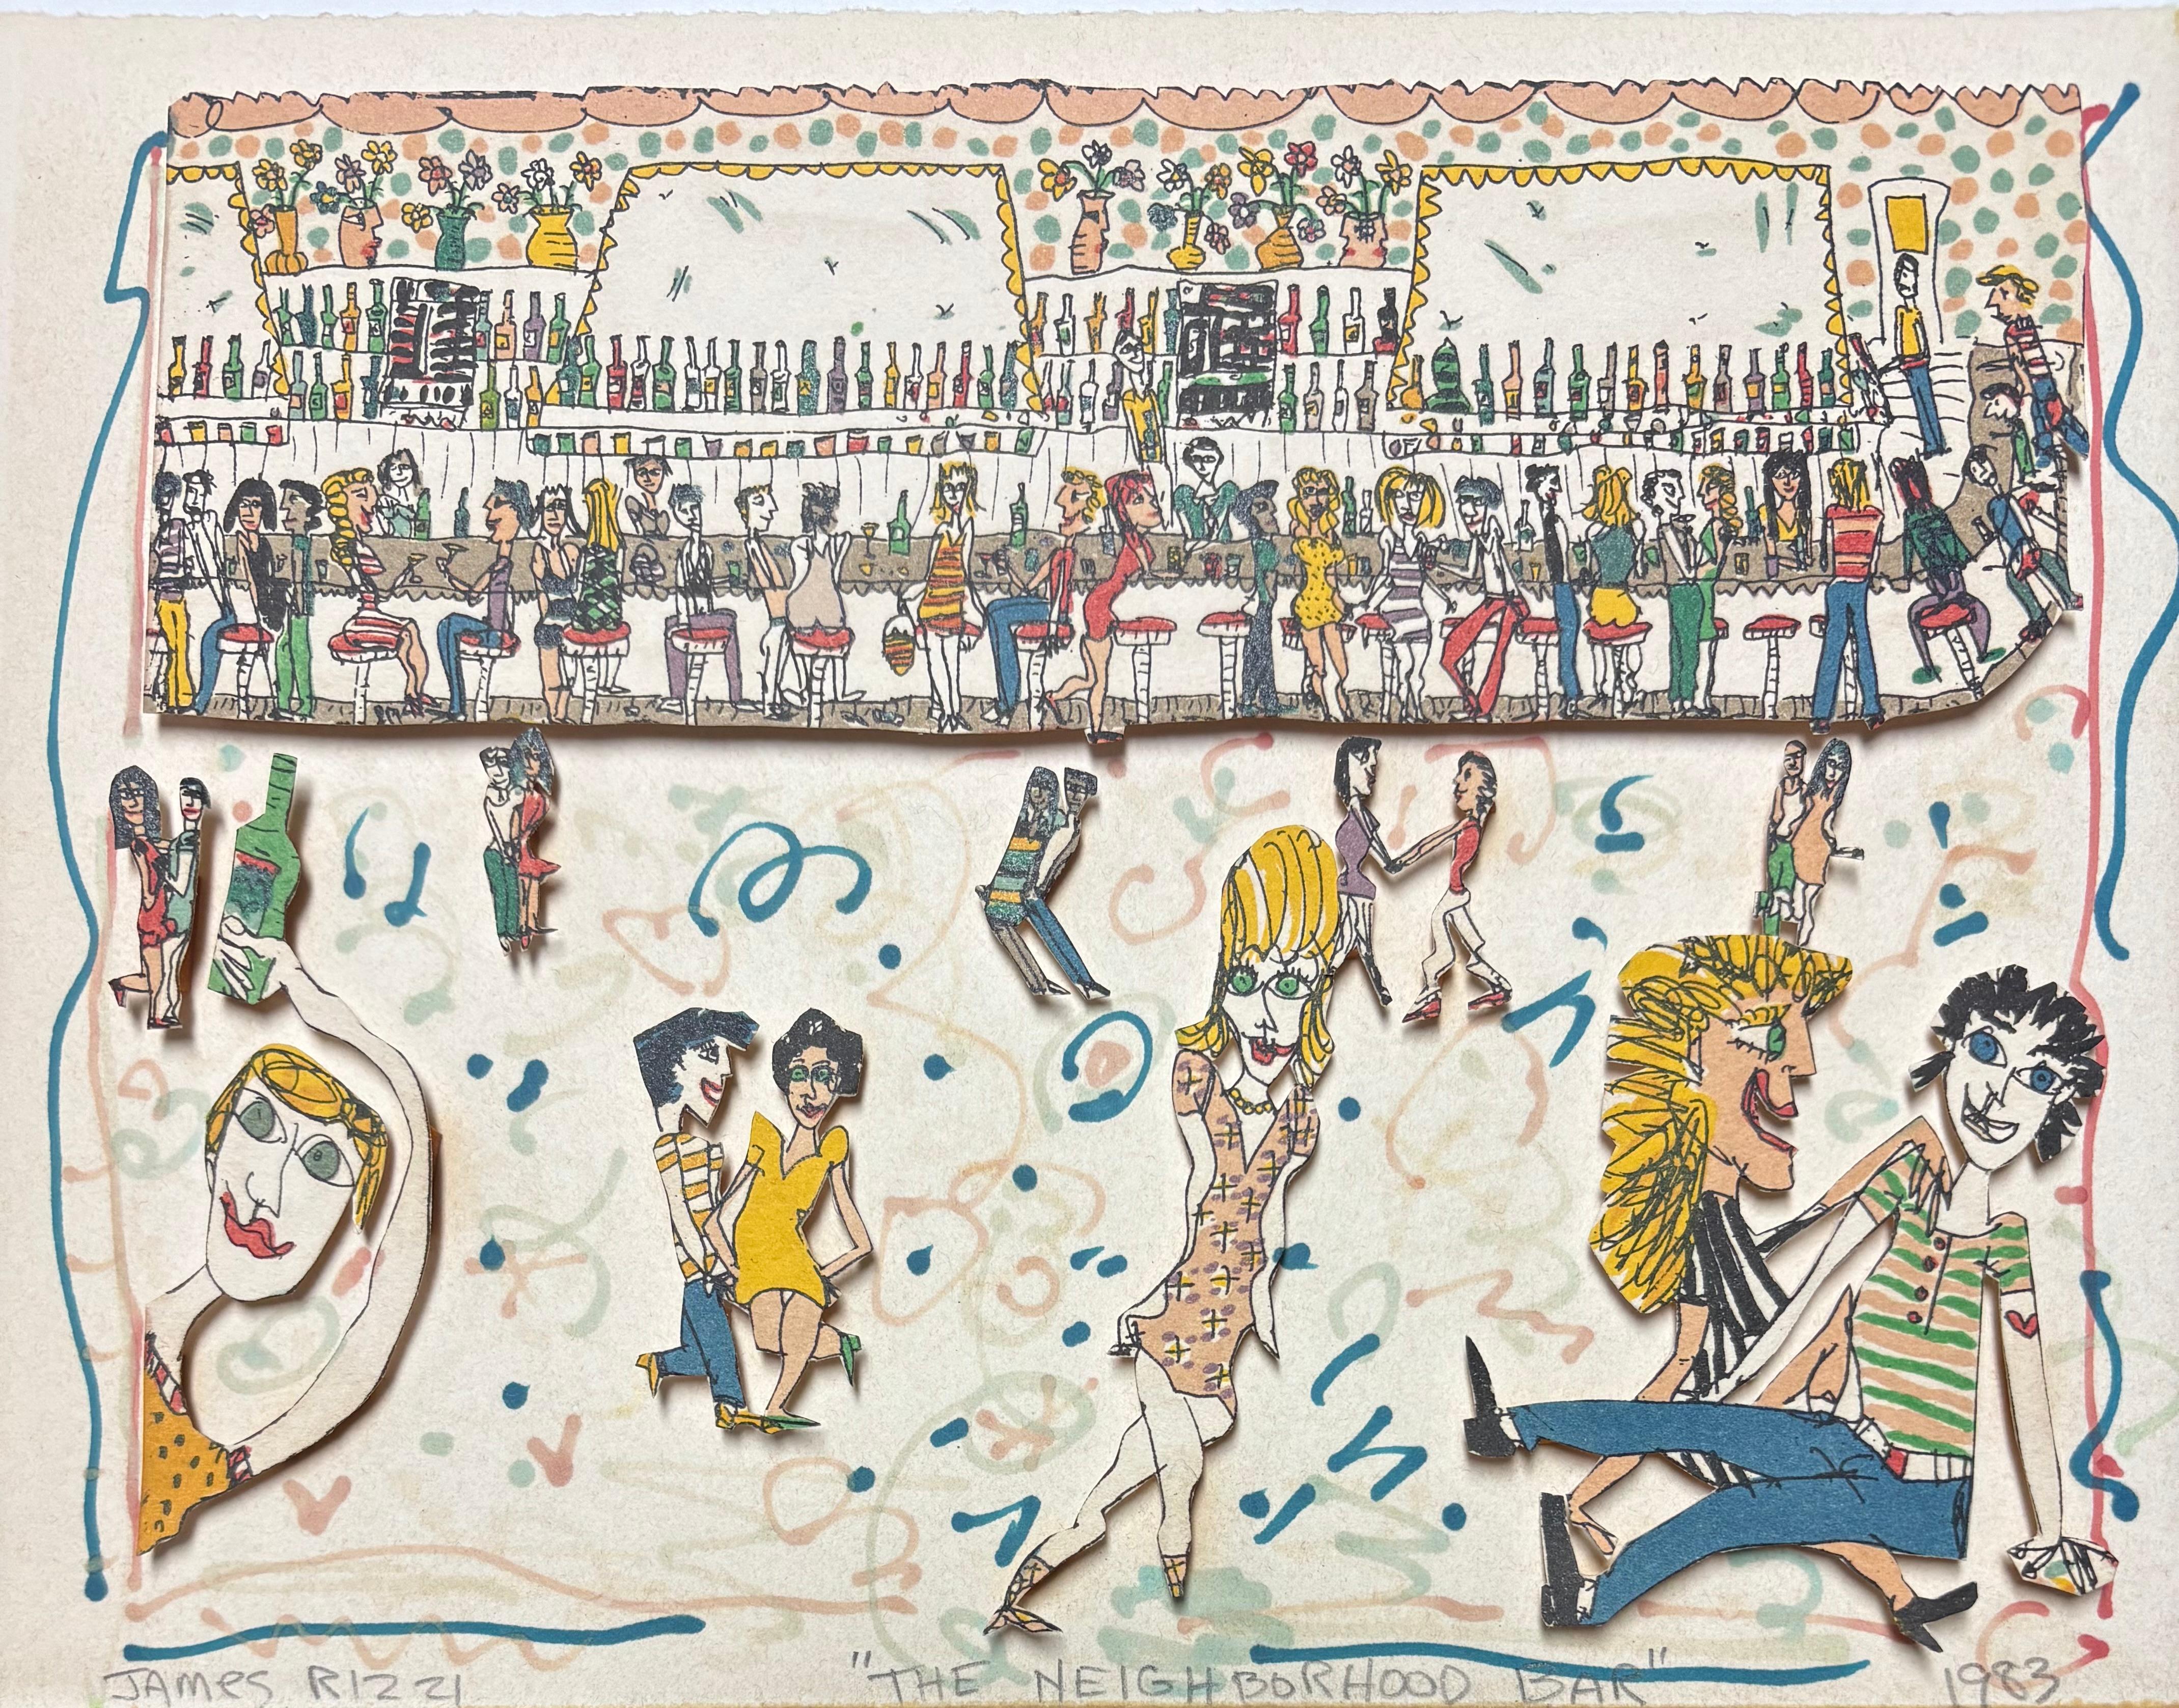 JAMES RIZZI "THE NEIGHBORHOOD BAR" 1983